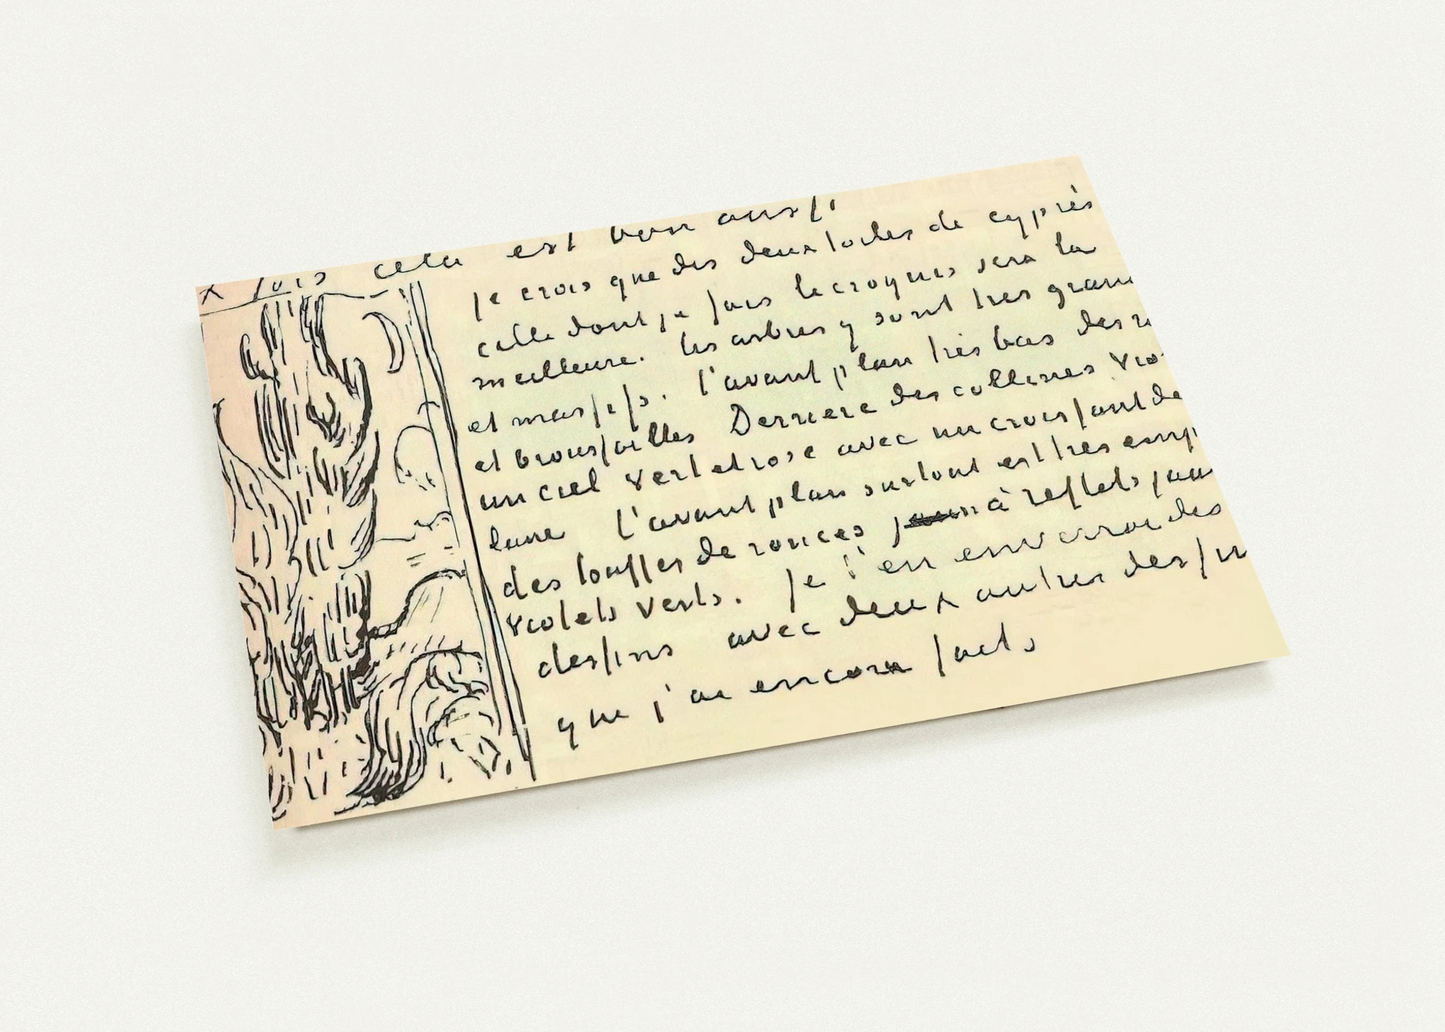 x fois cela est bon aussi
Je crois que des deux toiles de cyprès
celle dont je fais le croquis sera la
meilleure. Les arbres y sont très gran
et massifs. l'avant plan très bas des r
et broussailles Derriere des collines vio
un ciel vert et rose avec un croissant de
lune L'avant plan surtout est très emp
des touffes de ronces à reflets jau
violets verts. Je t'en enverrai des
dessins avec deux autres dessin
que j'ai encore faits